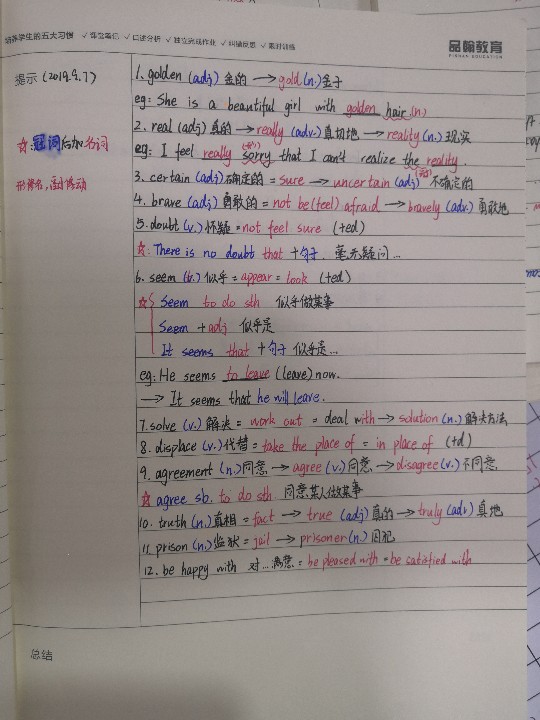 培养学生的五大习惯 ✓课堂笔记 ✓口述分析 ✓独立完成作业 ✓纠错反思 ✓限时训练
品翰教育
PINHAN EDUCATION
提示 (2019.9.7)
☆:冠词后加名词
形修名,副修动
1. golden (adj) 金的 → gold (n.) 金子
eg: She is a beautiful girl with golden hair (n)
2. real (adj) 真的 → really (adv.) 真切地 → reality (n.) 现实
eg: I feel really sorry that I can't realize the reality.
3. certain (adj) 确定的 = sure → uncertain (adj) 不确定的
4. brave (adj) 勇敢的 = not be (feel) afraid → bravely (adv.) 勇敢地
5. doubt (v.) 怀疑 = not feel sure (ted)
☆: There is no doubt that +句子. 毫无疑问...
6. seem (v.) 似乎 = appear = look (ted)
☆ Seem to do sth 似乎做某事
Seem + adj 似乎是
It seems that +句子 似乎是...
eg: He seems to leave (leave) now.
→ It seems that he will leave.
7. solve (v.) 解决 = work out = deal with → solution (n.) 解决方法
8. displace (v.) 代替 = take the place of = in place of (td)
9. agreement (n.) 同意 → agree (v.) 同意 → disagree (v.) 不同意
☆ agree sb. to do sth 同意某人做某事
10. truth (n.) 真相 = fact → true (adj) 真的 → truly (adv) 真地
11. prison (n.) 监狱 = jail → prisoner (n.) 囚犯
12. be happy with 对...满意 = be pleased with = be satisfied with
总结